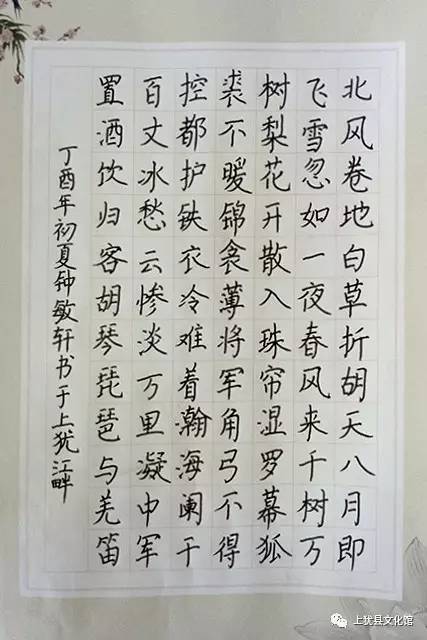 北风卷地白草折胡天八月即
飞雪忽如一夜春风来千树万
树梨花开散入珠帘湿罗幕狐
裘不暖锦衾薄将军角弓不得
控都护铁衣冷难着瀚海阑干
百丈冰愁云惨淡万里凝中军
置酒饮归客胡琴琵琶与羌笛
丁酉年初夏钟敏轩书于上犹江畔
上犹县文化馆